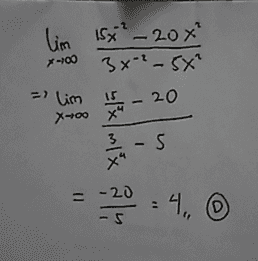 lim 15x⁻² - 20x²
x→∞ 3x⁻² - 5x²
=> lim 15/x⁴ - 20
x→∞ 3/x⁴ - 5
= -20/-5 = 4,, Ⓓ